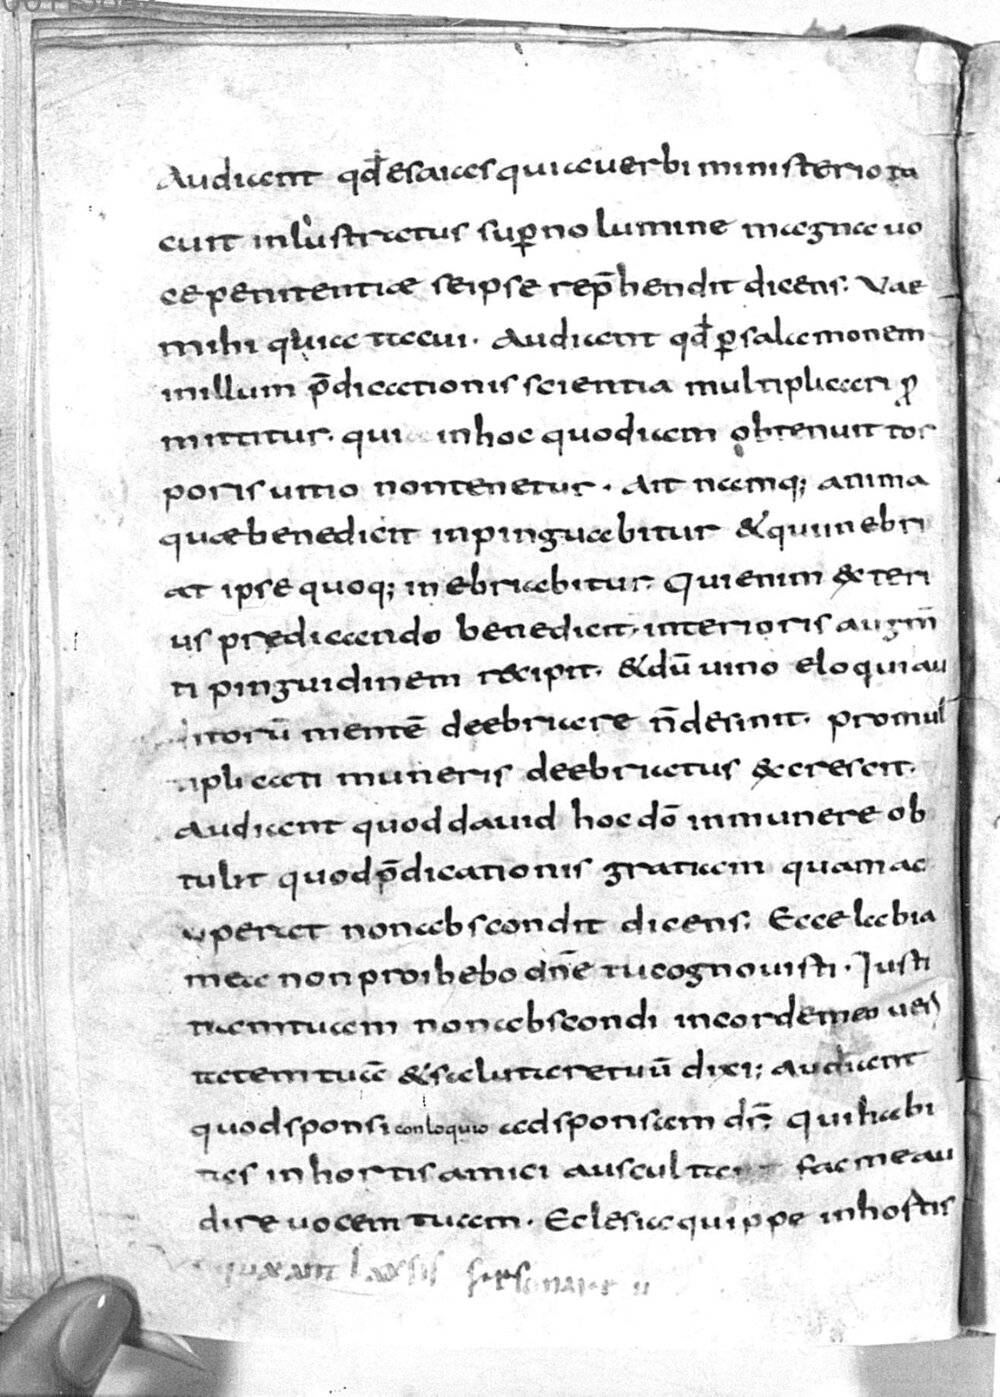 Audiant qđ esaias quia uerbi ministerio ta
cuit inlustratus sup̄no lumine magna uo
ce penitentiæ se ipse rep̄hendit dicens: Vae
mihi quia tacui. Audiant qđ ꝑ salamonem
in illum p̄dicationis scientia multiplicari ꝓ
mittitur. qui in hoc quod iam obtenuit tor
poris uitio non tenetur. Ait namq; anima
quæ benedicit inpinguabitur & qui inebri
at ipse quoq; inebriabitur. Qui enim exteri
us prędicando benedicit. interioris augm̄
ti pinguidinem recipit. & dū uino eloqui au
itorū mentē deebriare n̄ desinit. promul
iplicati muneris deebriatus excrescit.
Audiant quod dauid hoc dō in munere ob
tulit quod p̄dicationis gratiam quam ac
ceperat non abscondit dicens: Ecce labia
mea non proibebo dn̄e tu cognouisti. Justi
tiam tuam non abscondi in corde meo ueri
tatem tuā & salutare tuū dixi; Audiant
quod sponsi conloquio ad sponsam dr̄: Qui habi
tas in hortis amici auscultant fac me au
dire uocem tuam. Eclesia quippe in hostis